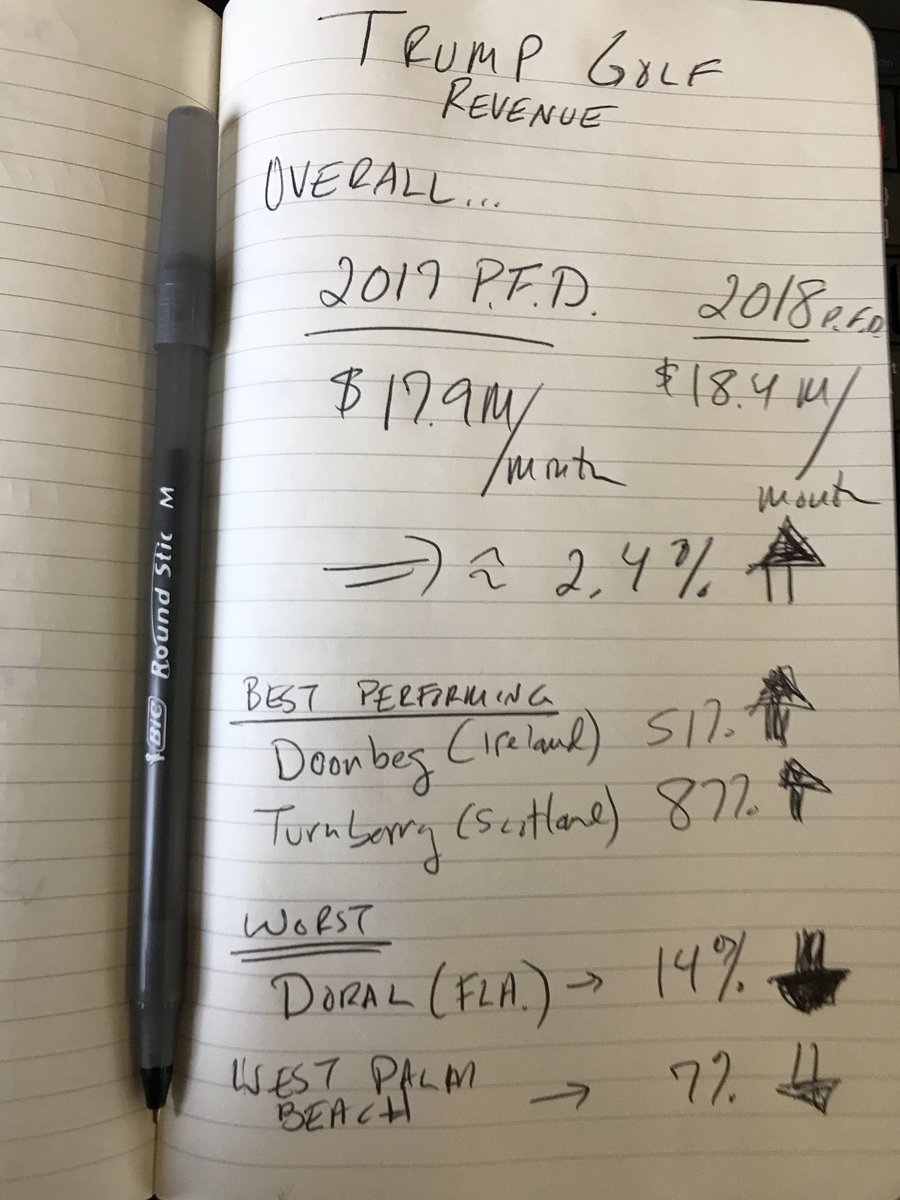 TRUMP GOLF
REVENUE
OVERALL...
2017 P.F.D.
2018 P.F.D
$17.9M/month
$18.4M/month
⇒ ≈ 2.4% ↑
BEST PERFORMING
Doonbeg (Ireland) 51% ↑
Turnberry (Scotland) 87% ↑
WORST
DORAL (FLA.) → 14% ↓
WEST PALM
BEACH → 7% ↓
BIC Round Stic M